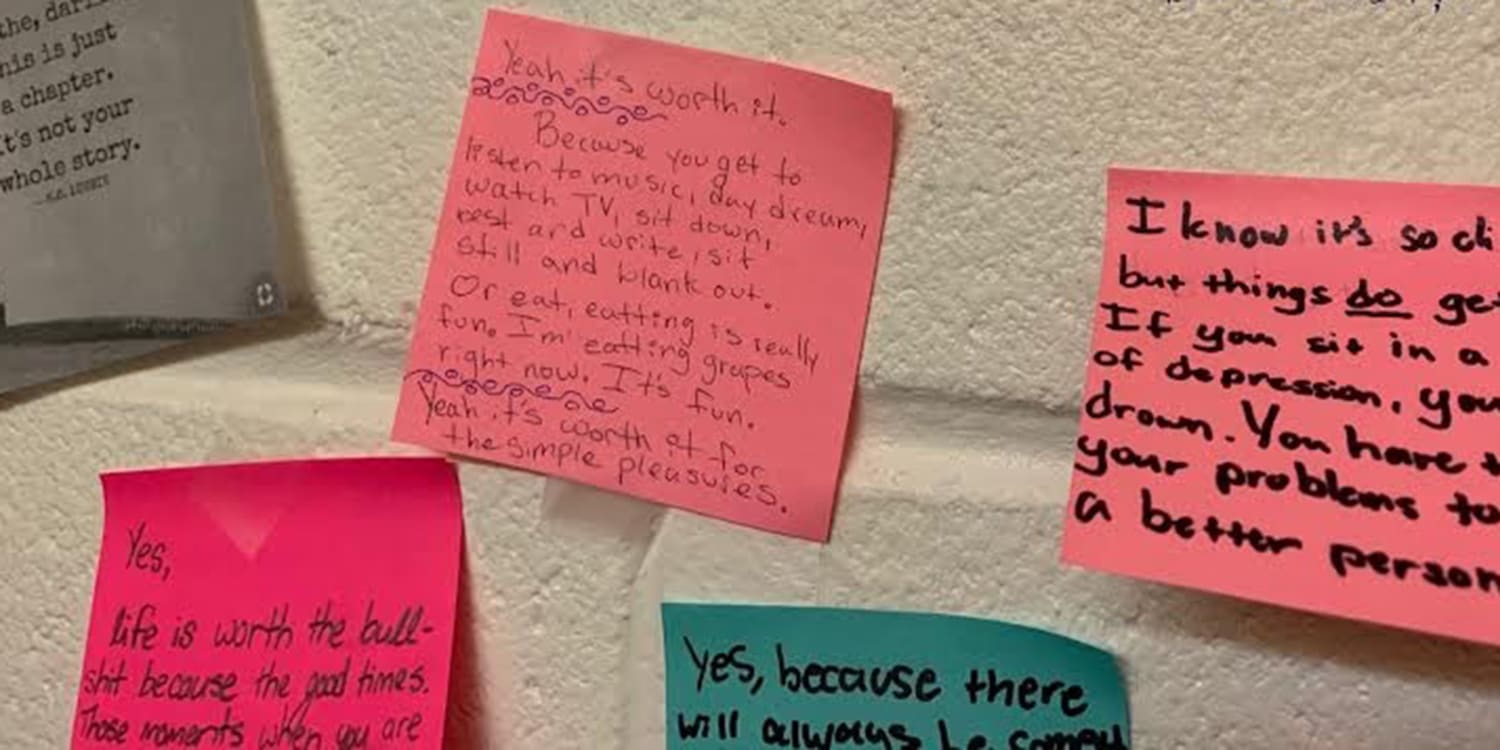 the, dar
his is just
a chapter.
It's not your
whole story.
Yeah it's worth it.
Because you get to
listen to music, day dream,
watch TV, sit down,
rest and write, sit
still and blank out.
Or eat, eatting is really
fun. I'm eatting grapes
right now. It's fun.
Yeah it's worth it for
the simple pleasures.
I know it's so di
but things do get
If you sit in a
of depression, you
drown. You have t
your problems to
a better person
Yes,
life is worth the bull-
shit because the good times.
Those moments when you are
Yes, because there
will always be